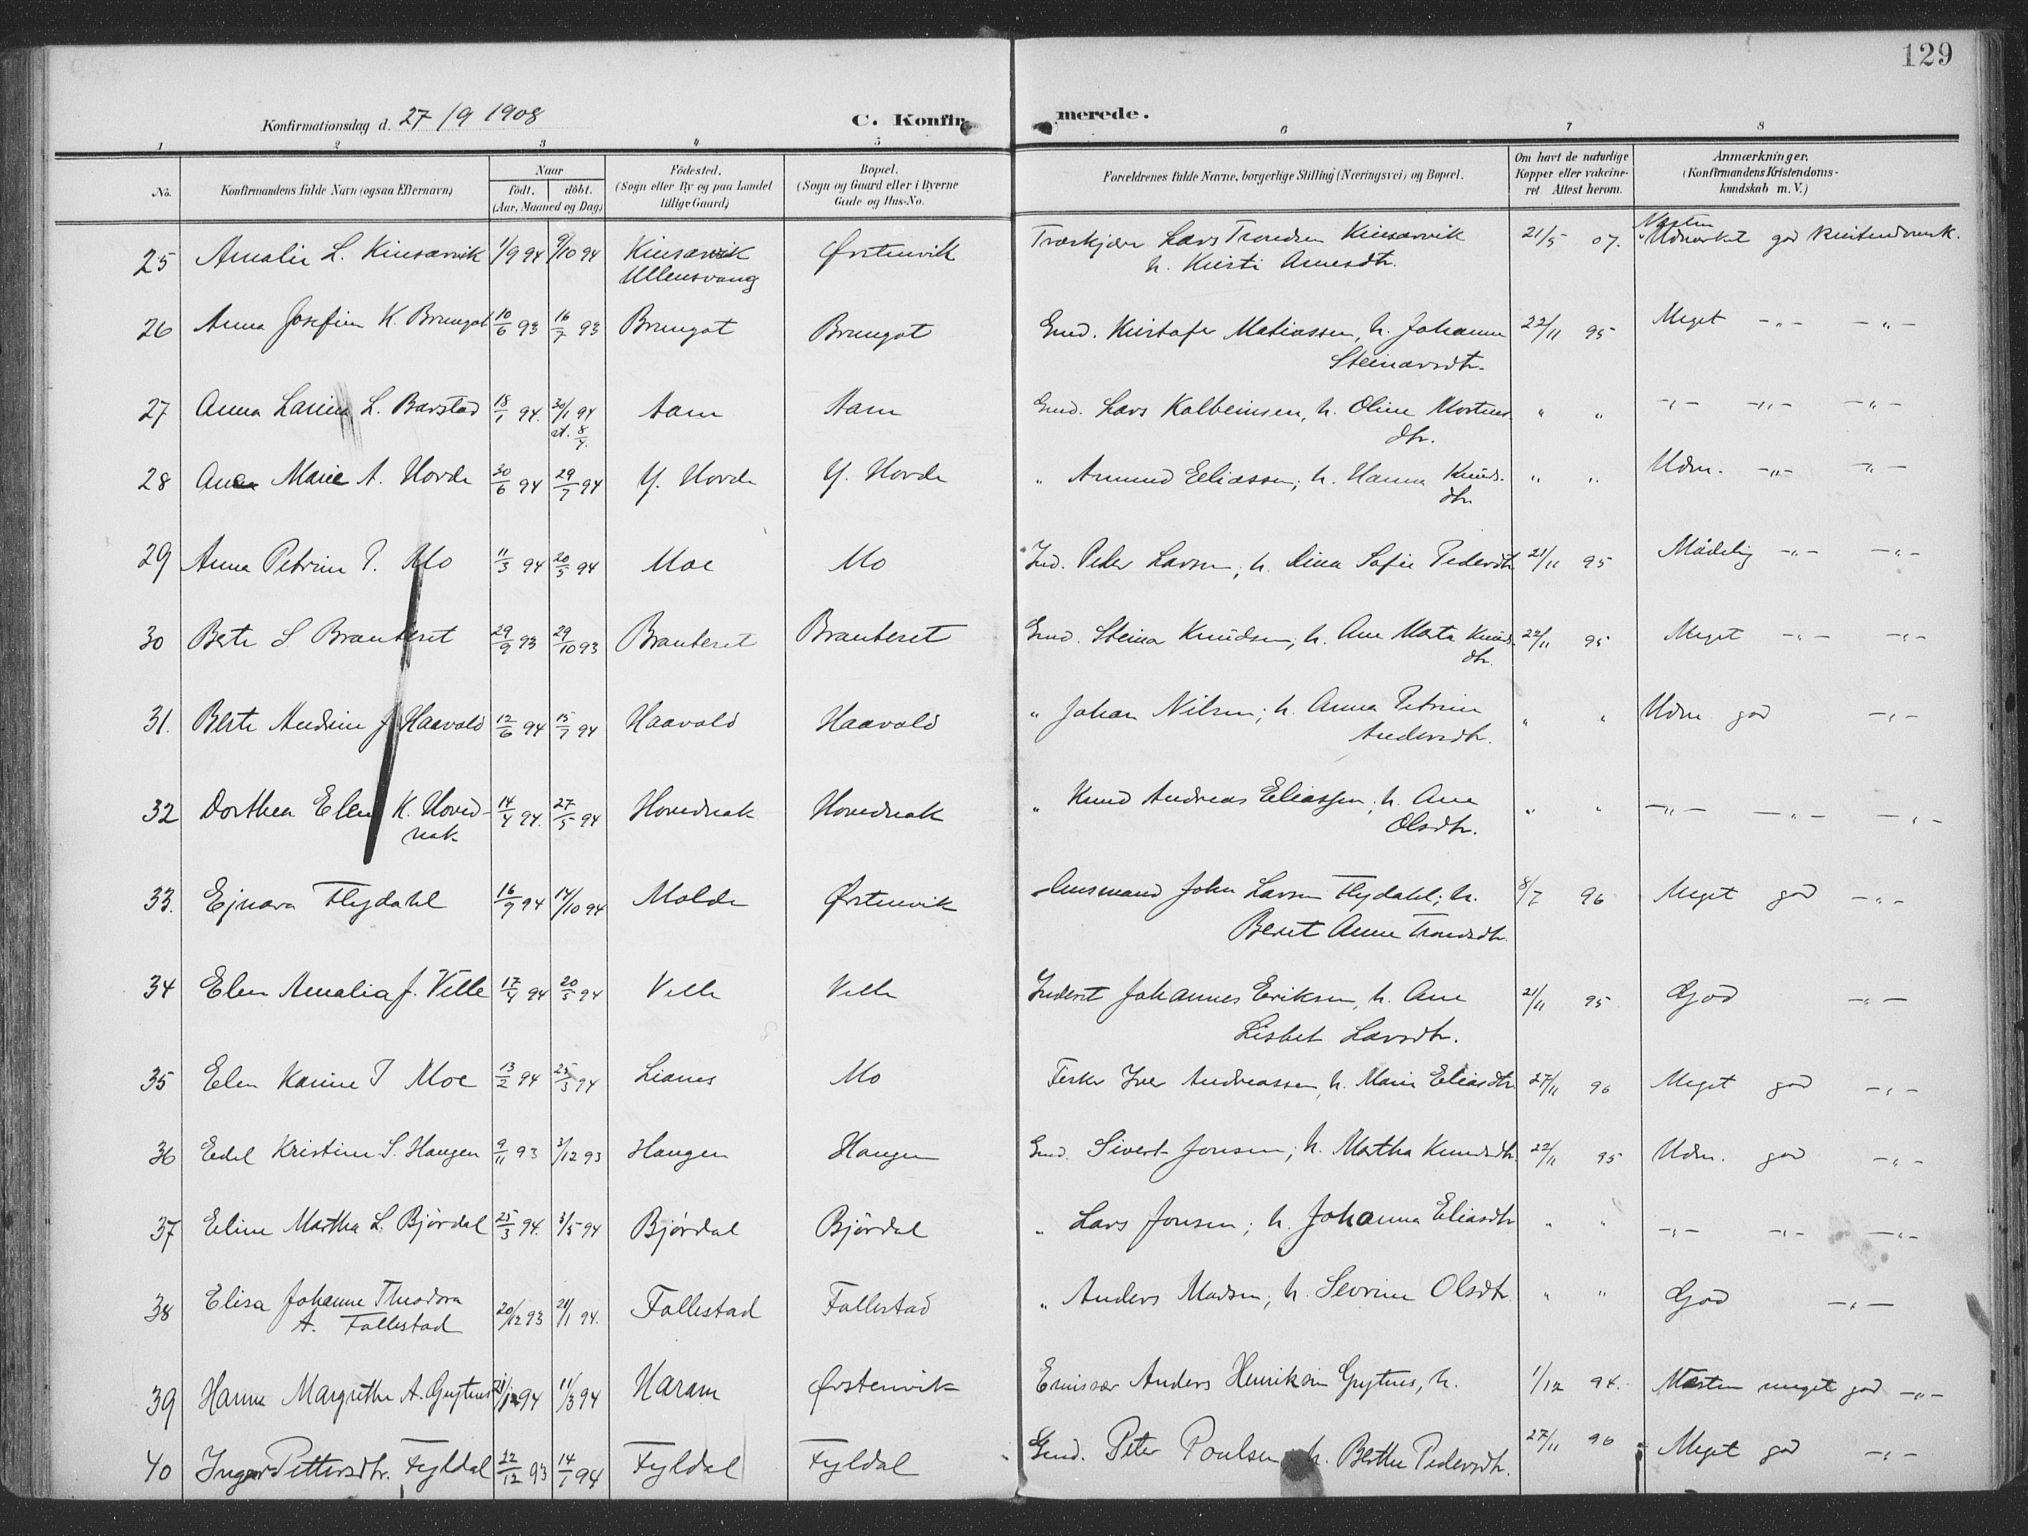 129
Konfirmationsdag d. 27/9 1908 C. Konfirmerede.
1 2 3 4 5 6 7 8
No. Konfirmandens fulde Navn (ogsaa Efternavn) Naar födt. döbt. (Aar, Maaned og Dag) Födested. (Sogn eller By og paa Landet tillige Gaard) Bopæl. (Sogn og Gaard eller i Byerne Gade og Hus-No. Forældrenes fulde Navne, borgerlige Stilling (Næringsvei) og Bopæl. Om havt de naturlige Kopper eller vakcineret. Attest herom. Anmærkninger. (Konfirmandens Kristendomskundskab m. V.)
25 Amalie L. Kinsarvik 1/9 94 9/10 94 Kinsarvik Ørstenvik Træskjærer Lars Trondsen Kinsarvik 21/5 07. Næsten Udmærket god Kristendomsk.
Ullensvang h. Kristi Arnesdtr.
26 Anna Josefine K. Brungot 10/6 93 16/7 93 Brungot Brungot Gmd. Kristofer Matiassen, h. Johanne 22/11 95 Meget -"- -"-
Steinarsdtr.
27 Anna Larina L. Barstad 18/1 94. 30/1 94 Aam Aam Gmd. Lars Kolbeinsen, h. Oline Mortens " " -"- -"- -"-
st. 8/4. dtr.
28 Ane Marie A. Hovde 30/6 94 29/7 94 Y. Hovde Y. Hovde " Amund Eliassen; h. Hanna Knuds- " " Udm. -"- -"-
dtr
29 Anna Petrine P. Mo 11/3 94 20/5 94 Moe Mo Ind. Peder Larsen, h. Dina Sofie Pedersdtr 21/11 95 Mådelig -"- -"-
30 Berte S. Brauteset 29/9 93 29/10 93 Brauteset Brauteset Gmd. Steinar Knudsen, h. Ane Marta Knuds- 22/11 95 Meget -"- -"-
dtr.
31. Berte Andrine J. Haavold 12/6 94 15/7 94 Haavold Haavold " Johan Nilsen; h. Anna Petrine " " Udm god -"-
Andersdtr.
32 Dorthea Elen K. Hovid- 14/4 94. 27/5 94 Hovednak Hovednak " Knud Andreas Eliassen; h. Ane " " -"- -"- -"-
nak Olsdtr.
33. Ejnara Flydahl 16/9 94 14/10 94 Molde Ørstenvik Husmand John Larsen Flydahl; h. 8/7 96 Meget god -"-
Beret Anne Trondsdtr.
34 Elen Amalia J. Velle 17/4 94 20/5 94 Velle Velle Inderst Johannes Eriksen, h. Ane 21/11 95 God -"-
Lisbet Larsdtr.
35 Elen Karine I Moe 13/2 94 25/3 94 Lianes Mo Fisker Iver Andreassen, h. Marie Eliasdtr 27/11 96 Meget god -"-
36 Eldel Kristine S. Haugen 9/11 93 3/12 93 Haugen Haugen Gmd. Sivert Jonsen; h. Martha Knudsdtr. 22/11 95 Udm. god -"-
37 Eline Martha L. Bjørdal 25/3 94. 3/5 94 Bjørdal Bjørdal " Lars Jonsen; h. Johanna Eliasdtr " " -"- -"- -"-
38 Elisa Johanne Theodora 20/12 93 21/1 94. Follestad Follestad " Anders Madsen, h. Sevrine Olsdtr " " God -"-
A. Follestad
39 Hanna Margrethe A. Gnytnes 94 11/3 94 Haram Ørstenvik Emissær Anders Henriksen Grytnes, h. 1/12 94. Næsten meget god -"-
40 Inger Pettersdtr. Fyldal 22/12 93 14/1 94 Fyldal Fyldal Gmd. Peter Poulsen h. Berthe Pedersdtr. 27/11 96 Meget god -"-